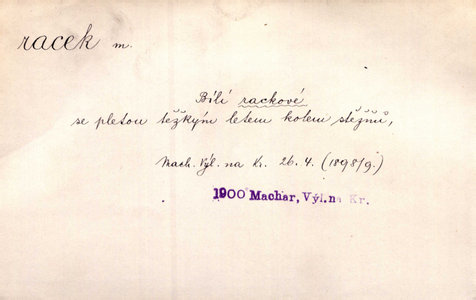 racek m.
Bílí rackové
se pletou těžkým letem kolem stěžňů,
Mach. Výl. na Kr. 26.4. (1898/9.)
1900 Machar, Výl. na Kr.